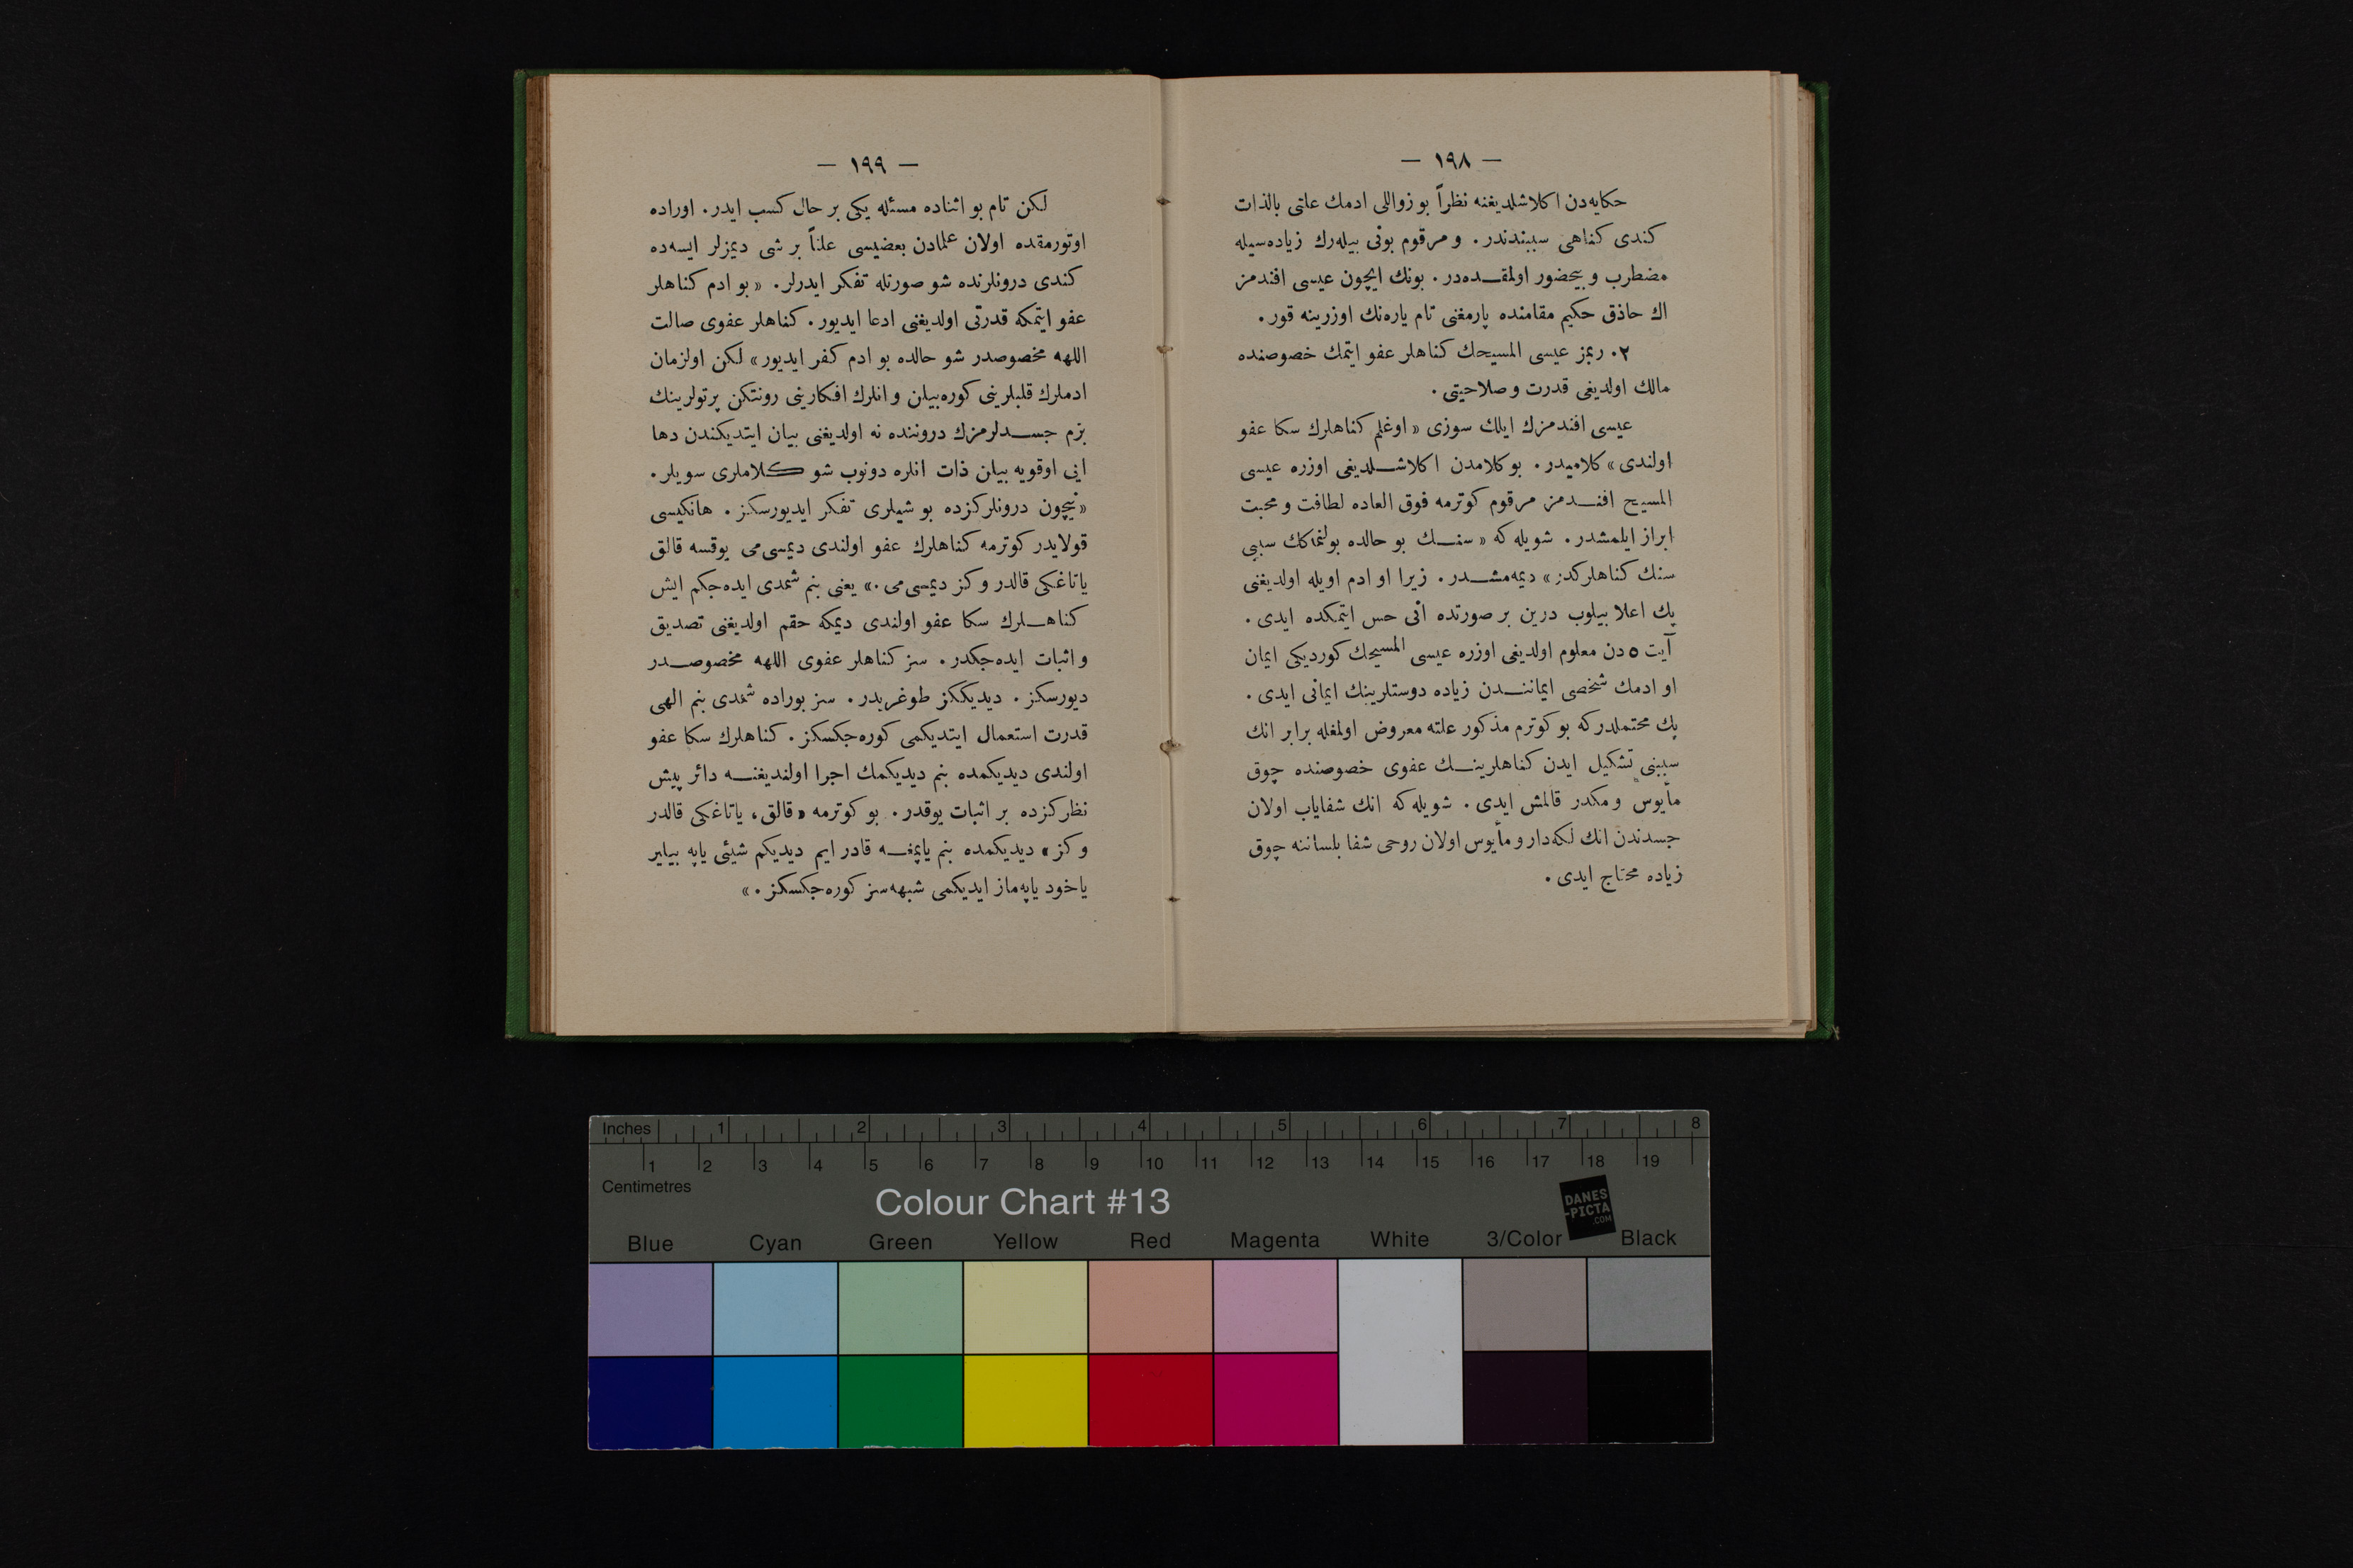 — ١٩٨ —
حكايه‌دن اكلاشلديغنه نظراً بو زواللى ادمك علتى بالذات
كندى كناهى سببندندر. و مرقوم بونى بيله‌رك زياده‌سيله
مضطرب و بيحضور اولمقـــده‌در. بونك ايچون عيسى افندمز
اك حاذق حكيم مقامنده پارمغنى تام ياره‌نك اوزرينه قور.
٢. ربمز عيسى المسيحك كناهلر عفو ايتمك خصوصنده
مالك اولديغى قدرت و صلاحيتى.
عيسى افندمزك ايلك سوزى « اوغلم كناهلرك سكا عفو
اولندى » كلاميدر. بو كلامدن اكلاشـــلديغى اوزره عيسى
المسيح افنـــدمز مرقوم كوترمه فوق العاده لطافت و محبت
ابراز ايلمشدر. شويله كه « سنـــك بو حالده بولنماكك سببى
سنك كناهلركدر » ديمه‌مشـــدر. زيرا او ادم اويله اولديغنى
پك اعلا بيلوب درين بر صورتده انى حس ايتمكده ايدى.
آيت ٥ دن معلوم اولديغى اوزره عيسى المسيحك كورديكى ايمان
او ادمك شخصى ايماننـــدن زياده دوستلرينك ايمانى ايدى.
پك محتملدر كه بو كوترم مذكور علته معروض اولمغله برابر انك
سببنى تشكيل ايدن كناهلرينـــك عفوى خصوصنده چوق
مأيوس و مكدر قالمش ايدى. شويله كه انك شفاياب اولان
جسدندن انك لكه‌دار و مأيوس اولان روحى شفا بلساننه چوق
زياده محتاج ايدى.
— ١٩٩ —
لكن تام بو اثناده مسئله يكى بر حال كسب ايدر. اوراده
اوتورمقده اولان علمادن بعضيسى علناً بر شى ديمزلر ايسه‌ده
كندى درونلرنده شو صورتله تفكر ايدرلر. « بو ادم كناهلر
عفو ايتمكه قدرتى اولديغنى ادعا ايديور. كناهلر عفوى صالت
اللهه مخصوصدر شو حالده بو ادم كفر ايديور » لكن اولزمان
ادملرك قلبلرينى كوره‌بيلن و انلرك افكارينى رونتكن پرتولرينك
بزم جســـدلرمزك دروننده نه اولديغنى بيان ايتديكندن دها
ايى اوقويه بيلن ذات انلره دونوب شو كلاملرى سويلر.
« نيچون درونلركزده بو شيلرى تفكر ايديورسكز. هانكيسى
قولايدر كوترمه كناهلرك عفو اولندى ديمسى‌مى يوقسه قالق
ياتاغكى قالدر و كز ديمسى‌مى.» يعنى بنم شمدى ايده‌جكم ايش
كناهـــلرك سكا عفو اولندى ديمكه حقم اولديغنى تصديق
و اثبات ايده‌جكدر. سز كناهلر عفوى اللهه مخصوصـــدر
ديورسكز. ديديككز طوغريدر. سز بوراده شمدى بنم الهى
قدرت استعمال ايتديكمى كوره‌جكسكز. كناهلرك سكا عفو
اولندى ديديكمده بنم ديديكمك اجرا اولنديغنـــه دائر پيش
نظركزده بر اثبات يوقدر. بو كوترمه « قالق، ياتاغكى قالدر
و كز » ديديكمده بنم ياپمغـــه قادر ايم ديديكم شيئى ياپه بيلير
ياخود ياپه‌ماز ايديكمى شبهه‌سز كوره‌جكسكز.»
Inches 1 2 3 4 5 6 7 8
1 2 3 4 5 6 7 8 9 10 11 12 13 14 15 16 17 18 19
Centimetres
Colour Chart #13
DANES
-PICTA
.COM
Blue Cyan Green Yellow Red Magenta White 3/Color Black